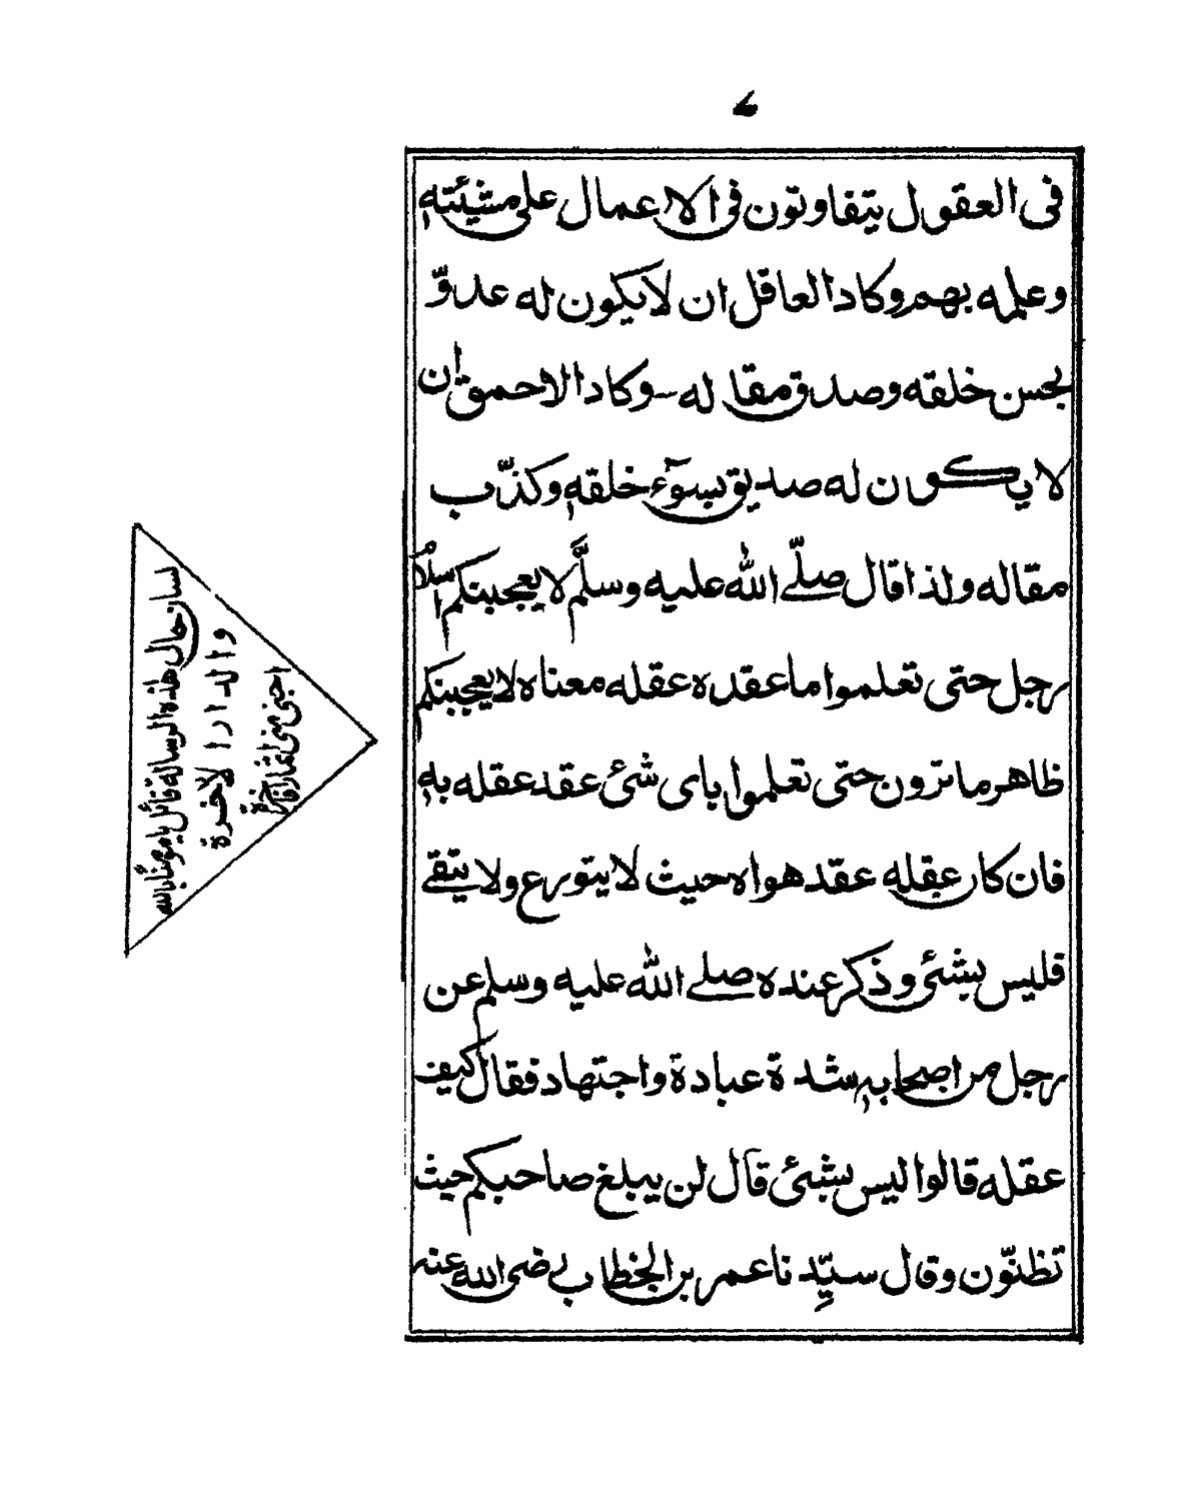 في العقول يتفاوتون في الاعمال على مشيئته
وعلمه بهم وكاد العاقل ان لا يكون له عدوّ
بحسن خلقه وصدق مقاله وكاد الاحمق ان
لا يكون له صديق بسوٓء خلقه وكذّب
مقاله ولذا قال صلّے الله عليه وسلّم لا يعجبنكم اسلام
رجل حتى تعلموا ما عقده عقله معناه لا يعجبنكم
ظاهر ما ترون حتى تعلموا باى شئ عقد عقله به
فان كان عقله عقد هواه حيث لا يتورع ولا يتقے
فليس بشئ وذكر عنده صلے الله عليه وسلم عن
رجل من اصحابه شدة عبادة واجتهاد فقال كيف
عقله قالوا ليس بشئ قال لن يبلغ صاحبكم حيث
تظنّون وقال سيّدنا عمر بن الخطاب رضى الله عنه
لسان حال هذه الرسالة قائل يا مؤمنا بالله
والدار الاخرة
اجنى منى اثمارا